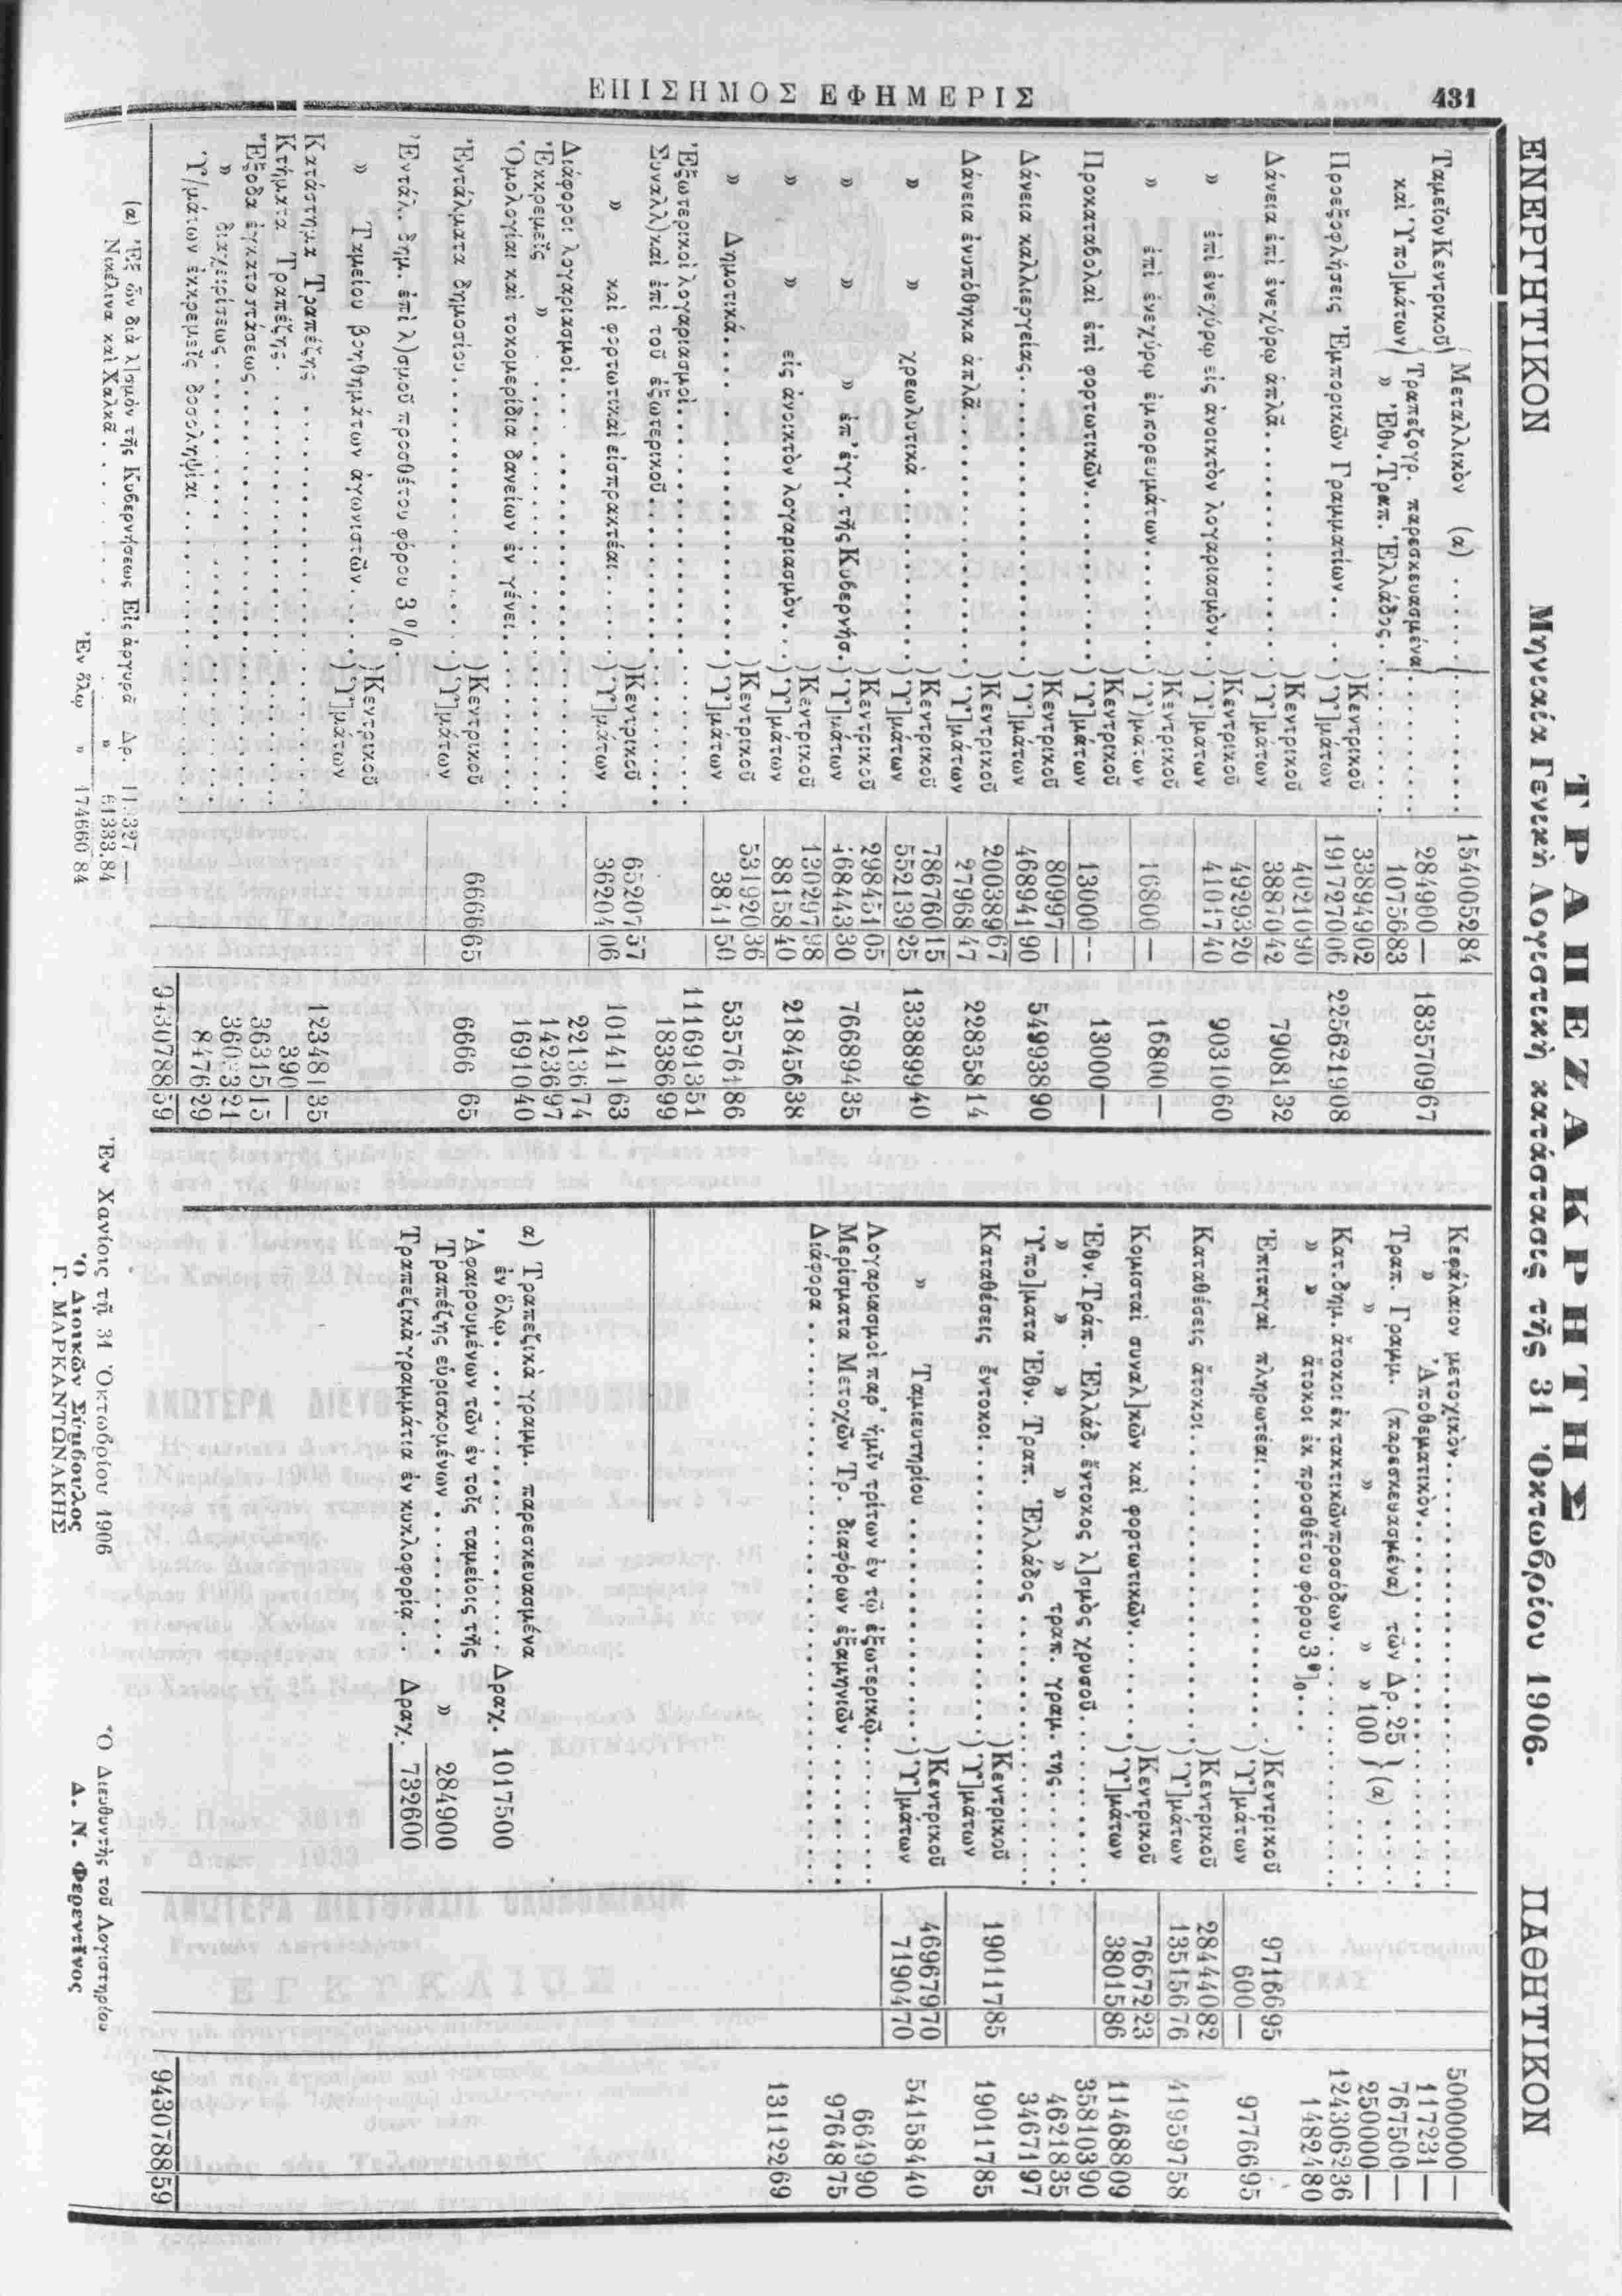 431 ΕΠΙΣΗΜΟΣ ΕΦΗΜΕΡΙΣ
ΤΡΑΠΕΖΑ ΚΡΗΤΗΣ
ΕΝΕΡΓΗΤΙΚΟΝ Μηνιαία Γενικὴ Λογιστικὴ κατάστασις τῆς 31 Ὀκτωβρίου 1906. ΠΑΘΗΤΙΚΟΝ
Ταμεῖον Κεντρικοῦ} {Μεταλλικὸν (α) . . . . . 1540052 84
καὶ Ὑπο]μάτων} {Τραπεζογρ. παρεσκευασμένα 284900 —
» Ἐθν. Τραπ. Ἑλλάδος. . 10756 83 1835709 67
Προεξοφλήσεις Ἐμπορικῶν Γραμματίων. . )Κεντρικοῦ 338949 02
)Ὑ]μάτων 1917270 06 2256219 08
Δάνεια ἐπὶ ἐνεχύρῳ ἁπλᾶ. . . )Κεντρικοῦ 40210 90
)Ὑ]μάτων 38870 42 79081 32
» ἐπὶ ἐνεχύρῳ εἰς ἀνοικτὸν λογαριασμὸν. )Κεντρικοῦ 49293 20
)Ὑ]μάτων 41017 40 90310 60
» ἐπὶ ἐνεχύρῳ ἐμπορευμάτων. . . )Κεντρικοῦ
)Ὑ]μάτων 16800 — 16800 —
Προκαταβολαὶ ἐπὶ φορτωτικῶν. . . )Κεντρικοῦ
)Ὑ]μάτων 13000 — 13000 —
Δάνεια καλλιεργείας. . . )Κεντρικοῦ 80997 —
)Ὑ]μάτων 468941 90 549938 90
Δάνεια ἐνυπόθηκα ἁπλᾶ. . . )Κεντρικοῦ 200389 67
)Ὑ]μάτων 27968 47 228358 14
» » χρεωλυτικὰ . . . )Κεντρικοῦ 786760 15
)Ὑ]μάτων 552139 25 1338899 40
» » » ἐπ' ἐγγ. τῆς Κυβερνήσ. )Κεντρικοῦ 298451 05
)Ὑ]μάτων 468443 30 766894 35
» » εἰς ἀνοικτὸν λογαριασμὸν. . . )Κεντρικοῦ 130297 98
)Ὑ]μάτων 88158 40 218456 38
» Δημοτικὰ. . . )Κεντρικοῦ 531920 36
)Ὑ]μάτων 3841 50 535761 86
Ἐξωτερικοὶ λογαριασμοὶ. . . 1116913 51
Συναλλ)καὶ ἐπὶ τοῦ ἐξωτερικοῦ. . . 18386 99
» καὶ φορτωτικαὶ εἰσπρακτέαι. . . )Κεντρικοῦ 65207 57
)Ὑ]μάτων 36204 06 101411 63
Διάφοροι λογαριασμοὶ. . . 22136 74
Ἐκκρεμεῖς » . . . 14236 97
Ὁμολογίαι καὶ τοκομερίδια δανείων ἐν γένει. . 16910 40
Ἐντάλματα δημοσίου. . . )Κεντρικοῦ 6666 65
)Ὑ]μάτων 6666 65
Ἐντάλ. δημ. ἐπὶ λ)σμοῦ προσθέτου φόρου 3 %
» Ταμείου βοηθημάτων ἀγωνιστῶν. . . )Κεντρικοῦ
)Ὑ]μάτων
Κατάστημα Τραπέζης . . . 123481 35
Κτήματα Τραπέζης. . . 390 —
Ἔξοδα ἐγκαταστάσεως. . . 36315 15
» διαχειρίσεως. . .
Ὑ/μάτων ἐκκρεμεῖς δοσοληψίαι. . . 8476 29
9430788 59
(α) Ἐξ ὧν διὰ λ]σμὸν τῆς Κυβερνήσεως Εἰς ἀργυρᾶ Δρ. —
Νικέλινα καὶ Χαλκᾶ. . . » 61333.84
Ἐν ὅλῳ » 174660 84
Κεφάλαιον μετοχικὸν. . . 5000000 —
» Ἀποθεματικὸν. . . 117231 —
Τραπ. Γραμμ. (παρεσκευασμένα) τῶν Δρ. 25} (α) 767500 —
» » » » » 100} 250000 —
Κατ. δημ. ἄτοκοι ἐκτακτικῶν προσόδων. . . 1243062 36
» » ἄτοκοι ἐκ προσθέτου φόρου 3%. . . 14824 80
Ἐπιταγαὶ πληρωτέαι. . . )Κεντρικοῦ 97166 95
)Ὑ]μάτων 600 — 97766 95
Καταθέσεις ἄτοκοι. . . )Κεντρικοῦ 284440 82
)Ὑ]μάτων 135156 76 419597 58
Κομισταὶ συναλ]κῶν καὶ φορτωτικῶν. . . )Κεντρικοῦ 76672 23
)Ὑ]μάτων 38015 86 114688 09
Ἐθν. Τράπ. Ἑλλάδ. ἔντοκος λ]σμὸς χρυσοῦ. . . 358103 90
» » » » » τραπ. γραμ. της. . . 46218 35
Ὑπο]ματα Ἐθν. Τραπ. Ἑλλάδος . . . 34671 97
Καταθέσεις ἔντοκοι. . . )Κεντρικοῦ 190117 85
)Ὑ]μάτων 190117 85
» Ταμιευτηρίου . . . )Κεντρικοῦ 469679 70
)Ὑ]μάτων 71904 70 541584 40
Λογαριασμοὶ παρ' ἡμῖν τρίτων ἐν τῷ ἐξωτερικῷ. . . 6649 90
Μερίσματα Μετοχῶν Τρ. διαφόρων ἑξαμηνιῶν . . . 97648 75
Διάφορα . . . 131122 69
9430788 59
α) Τραπεζικὰ γραμμ. παρεσκευασμένα
ἐν ὅλῳ. . . Δραχ. 1017500
Ἀφαιρουμένων τῶν ἐν τοῖς ταμείοις τῆς
Τραπέζης εὑρισκομένων . . . » 284900
Τραπεζικὰ γραμμάτια ἐν κυκλοφορίᾳ . . Δραχ. 732600
Ἐν Χανίοις τῇ 31 Ὀκτωβρίου 1906
Ὁ Διοικῶν Σύμβουλος
Γ. ΜΑΡΚΑΝΤΩΝΑΚΗΣ
Ὁ Διευθυντὴς τοῦ Λογιστηρίου
Δ. Ν. Φερεντῖνος